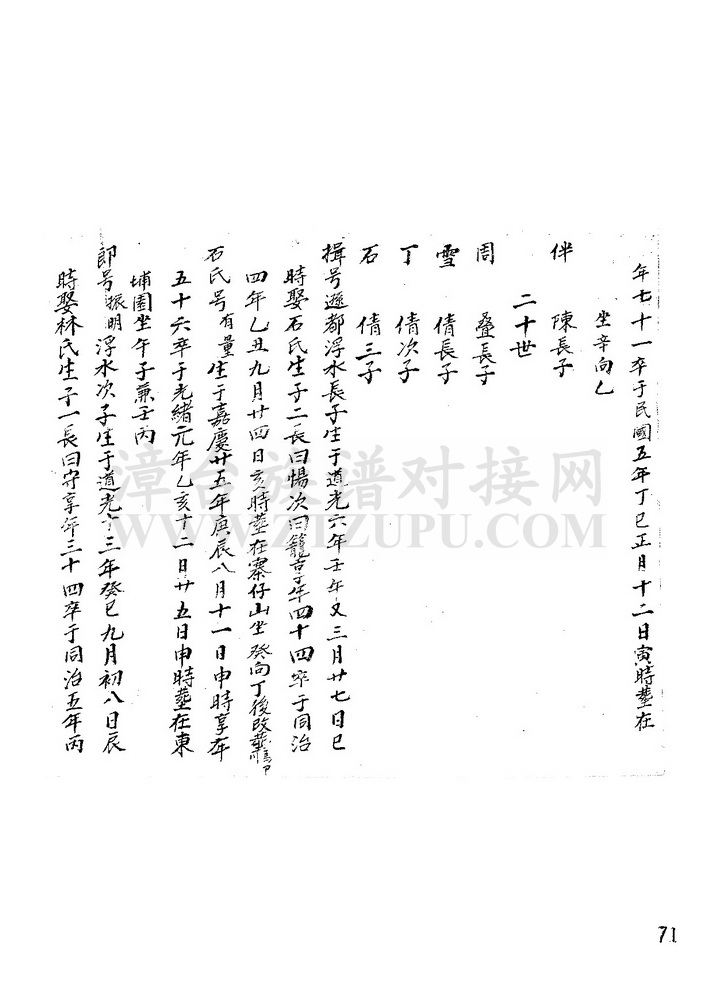 年七十一卒于民國五年丁巳正月十二日寅時塟在
坐辛向乙
伴 陳長子
二十世
周 叠長子
雪 倩長子
丁 倩次子
石 倩三子
揖号遜都浮水長子生于道光六年壬年又三月廿七日巳
時娶石氏生子二長曰惕次曰籠享年四十四卒于同治
四年乙丑九月廿四日亥時塟在寨仔山坐癸向丁後改塟
石氏号有量生于嘉慶廿五年庚辰八月十一日申時享年
五十六卒于光緒元年乙亥十二日廿五日申時塟在東
埔園坐午子兼壬丙
郎号振明浮水次子生于道光十三年癸巳九月初八日辰
時娶林氏生子一長曰守享年三十四卒于同治五年丙
71
漳台族谱对接网
WWW.ZTZUPU.COM